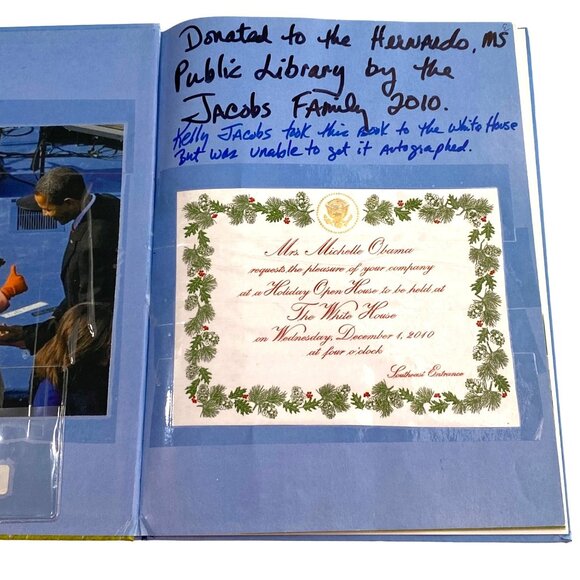 Donated to the Hernando, MS
Public Library by the
Jacobs Family 2010.
Kelly Jacobs took this book to the White House
But was unable to get it autographed.
Mrs. Michelle Obama
requests the pleasure of your company
at a Holiday Open House to be held at
The White House
on Wednesday, December 1, 2010
at four o'clock
Southeast Entrance